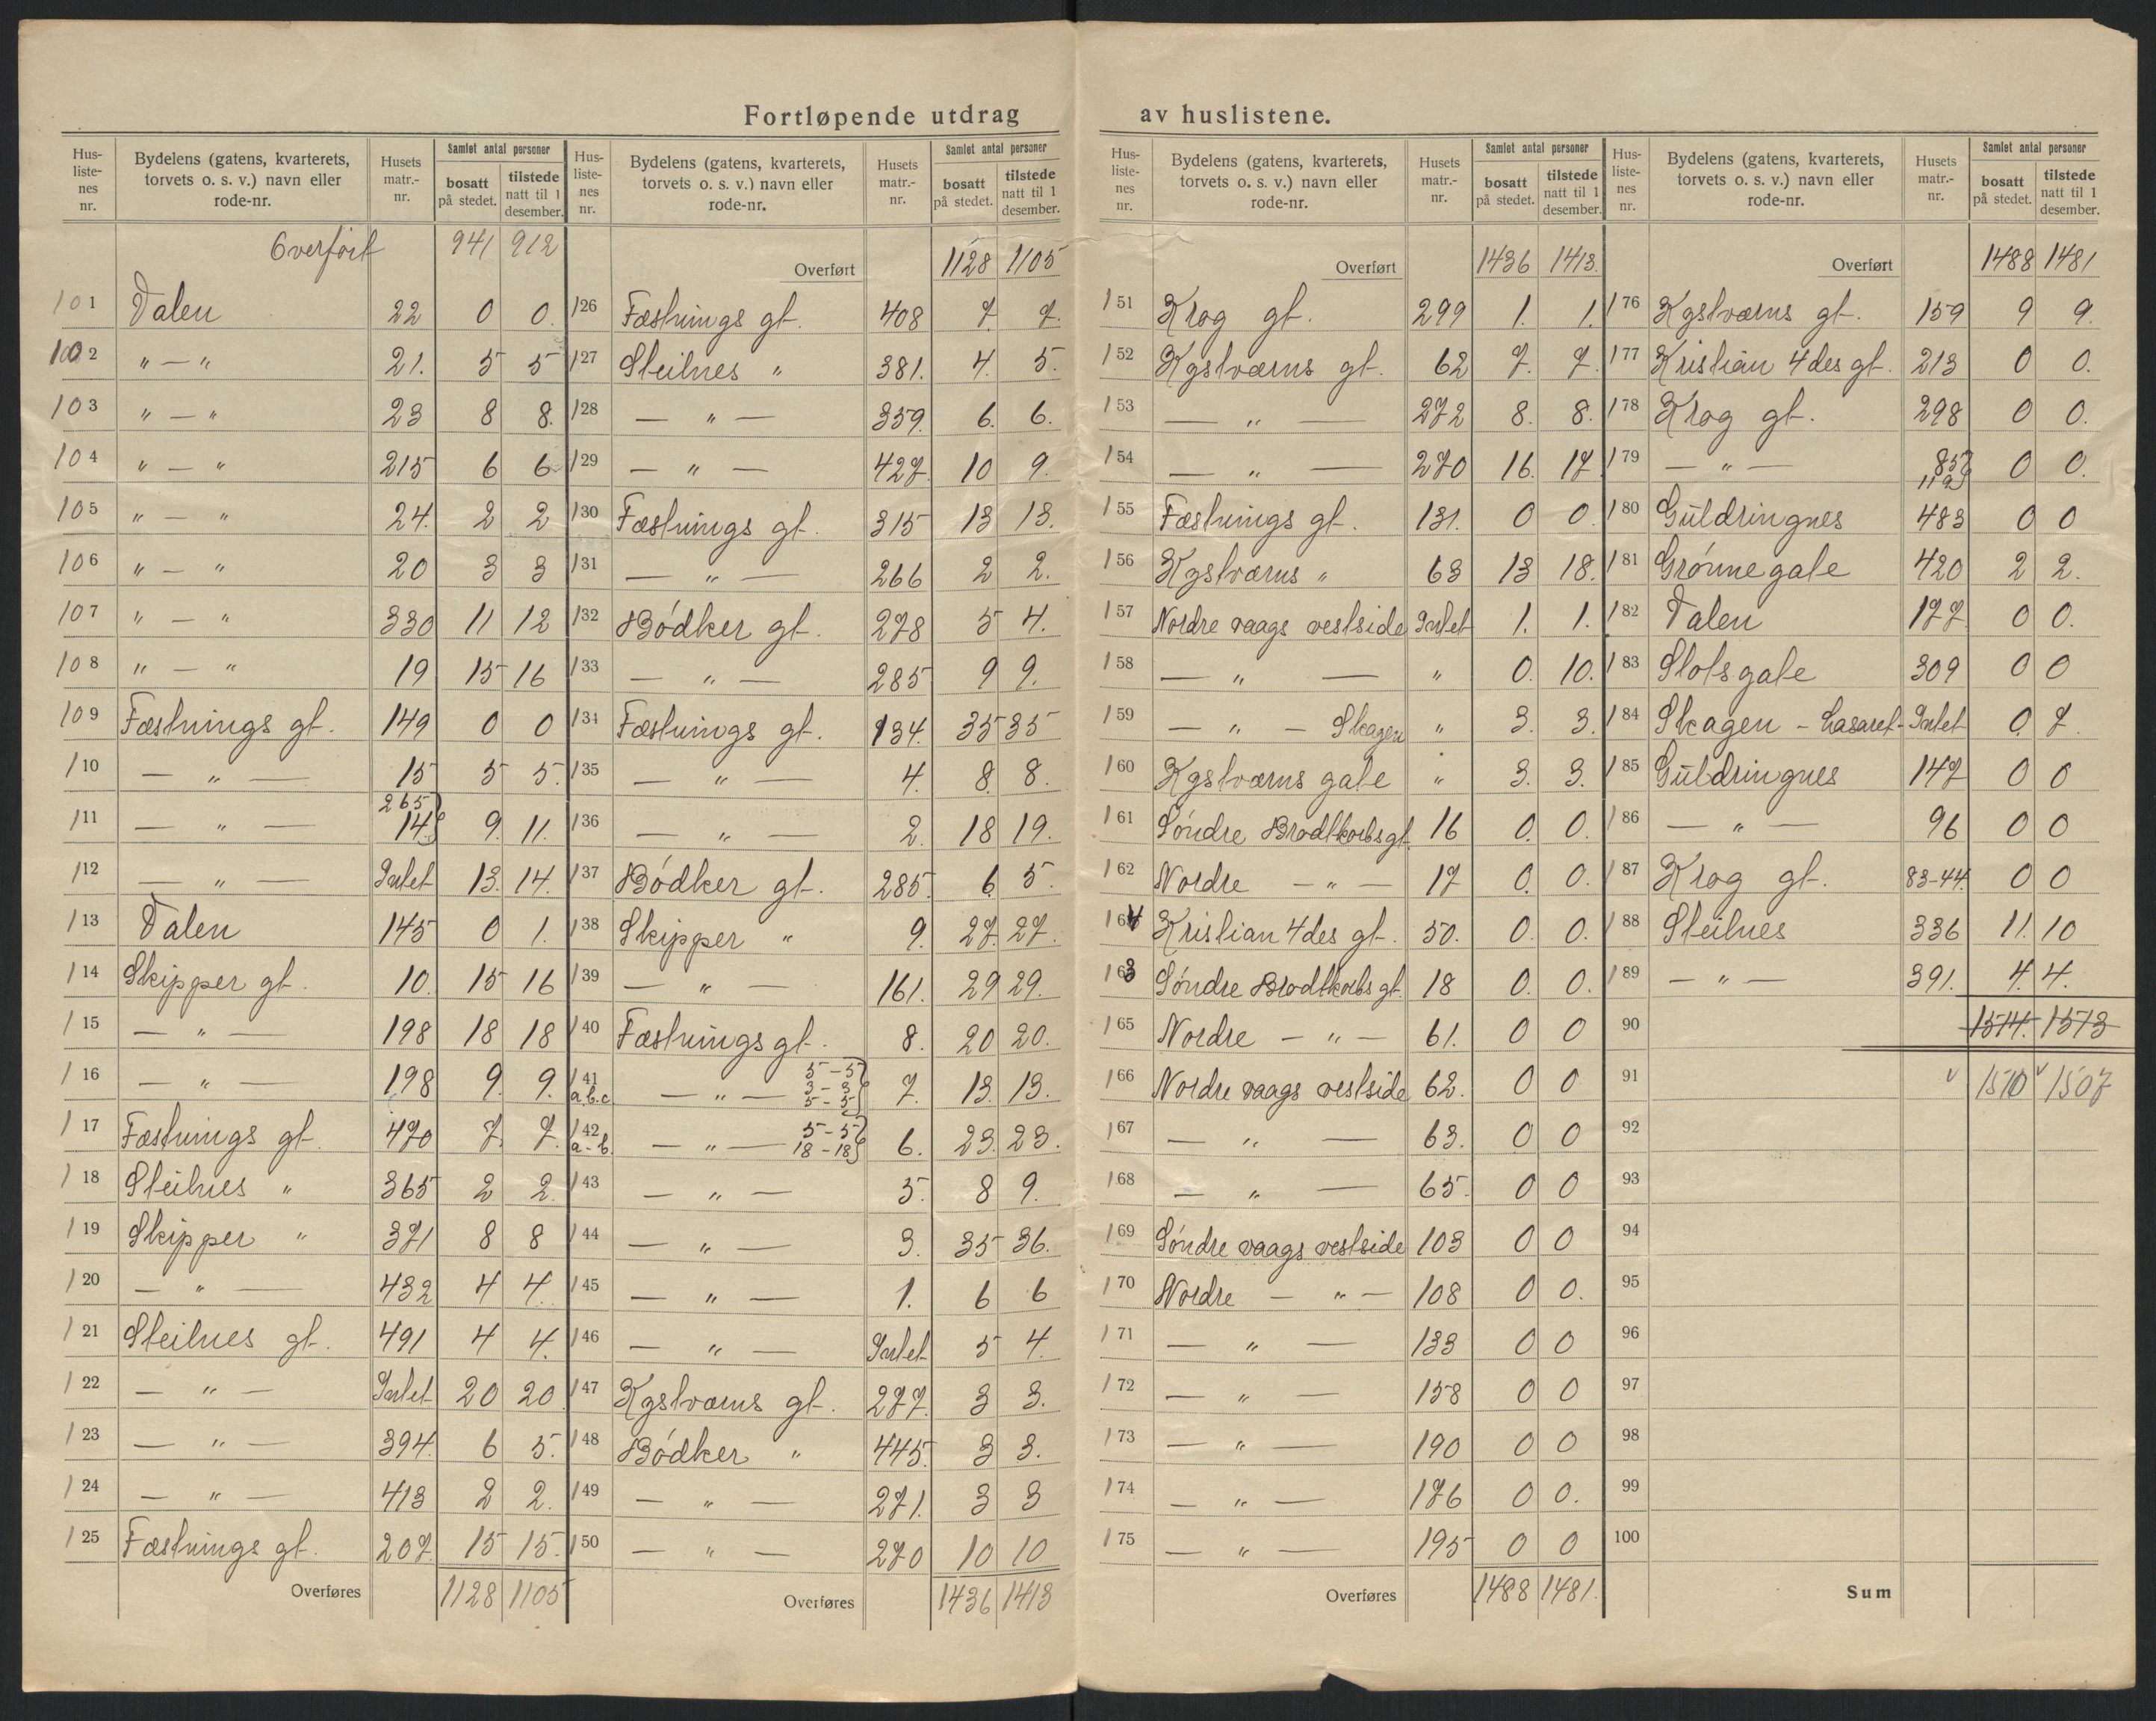 Fortløpende utdrag av huslistene.
Hus-listenes nr. Bydelens (gatens, kvarterets, torvets o. s. v.) navn eller rode-nr. Husets matr.-nr. Samlet antal personer bosatt på stedet. tilstede natt til 1 desember.
Overført 941 912
101 Dalen 22 0 0
102 " — " 21. 5 5
103 " — " 23 8 8.
104 " — " 215 6 6
105 " — " 24. 2 2
106 " — " 20 3 3
107 " — " 330 11 12
108 " — " 19 15 16
109 Fæstnings gt. 149 0 0
110 — " — 15 5 5.
111 — " — 265 14. 9. 11.
112 — " — Intet 13. 14.
113 Dalen 145 0 1.
114 Skipper gt. 10. 15 16
115 — " — 198 18 18
116 — " — 198 9. 9.
117 Fæstnings gt. 470 7. 7.
118 Steilnes " 365 2 2.
119 Skipper " 371 8 8
120 — " — 432 4 4.
121 Steilnes gt. 491 4 4.
122 — " — Intet 20 20
123 — " — 394. 6 5.
124 — " — 413 2 2.
125 Fæstnings gt. 207. 15 15.
Overføres 1128 1105
Hus-listenes nr. Bydelens (gatens, kvarterets, torvets o. s. v.) navn eller rode-nr. Husets matr.-nr. Samlet antal personer bosatt på stedet. tilstede natt til 1 desember.
Overført 1128 1105
126 Fæstnings gt. 408 7. 7.
127 Steilnes " 381. 4. 5.
128 — " — 359. 6. 6.
129 — " — 427. 10 9.
130 Fæstnings gt. 315 13 13.
131 — " — 266 2 2.
132 Bødker gt. 278 5 4.
133 — " — 285 9 9.
134 Fæstnings gt. 134. 35 35
135 — " — 4. 8. 8.
136 — " — 2. 18 19.
137 Bødker gt. 285. 6. 5.
138 Skipper " 9. 27. 27.
139 — " — 161. 29 29.
140 Fæstnings gt. 8. 20 20.
141 a.b.c — " — 5-5 3-3 5-5 7. 13. 13.
142 a-b. — " — 5-5 18-18 6. 23. 23.
143 — " — 5. 8 9.
144 — " — 3. 35 36.
145 — " — 1. 6 6
146 — " — Intet 5 4.
147 Kgstværns gt. 277. 3 3.
148 Bødker " 445. 3 3.
149 — " — 271. 3 3
150 — " — 270 10 10
Overføres 1436 1413
Hus-listenes nr. Bydelens (gatens, kvarterets, torvets o. s. v.) navn eller rode-nr. Husets matr.-nr. Samlet antal personer bosatt på stedet. tilstede natt til 1 desember.
Overført 1436 1413.
151 Krog gt. 299 1. 1.
152 Kgstværns gt. 62 7. 7.
153 — " — 272 8. 8.
154 — " — 270 16. 17.
155 Fæstnings gt. 131. 0 0.
156 Kgstværns " 63 13 18.
157 Nordre vaags vestside Intet 1. 1.
158 — " — " 0. 10.
159 — " — Skagen " 3. 3.
160 Kgstværns gate " 3. 3.
161 Søndre Brodtkorbs gt. 16 0. 0.
162 Nordre — " — 17 0. 0.
164 Kristian 4des gt. 50. 0. 0.
163 Søndre Brodtkorbs gt. 18 0. 0.
165 Nordre — " — 61. 0 0
166 Nordre vaags vestside 62. 0 0
167 — " — 63. 0 0
168 — " — 65. 0 0
169 Søndre vaags vestside 103 0 0
170 Nordre — " — 108 0 0.
171 — " — 133 0 0
172 — " — 158 0 0
173 — " — 190 0 0
174 — " — 176 0 0.
175 — " — 195 0 0
Overføres 1488 1481.
Hus-listenes nr. Bydelens (gatens, kvarterets, torvets o. s. v.) navn eller rode-nr. Husets matr.-nr. Samlet antal personer bosatt på stedet. tilstede natt til 1 desember.
Overført 1488 1481
176 Kgstværns gt. 159 9 9.
177 Kristian 4des gt. 213 0 0.
178 Krog gt. 298 0 0.
179 — " — 85 0 0.
180 Guldringnes 483 0 0
181 Grønnegate 420 2 2.
182 Dalen 177 0 0.
183 Slotsgate 309 0 0
184 Skagen - Lasaret- Intet 0. 7.
185 Guldringnes 147 0 0
186 — " — 96 0 0
187 Krog gt. 83-44. 0 0
188 Steilnes 336 11. 10
189 — " — 391. 4. 4.
90 1514. 1513
91 v 1510 v 1507
92
93
94
95
96
97
98
99
100
Sum